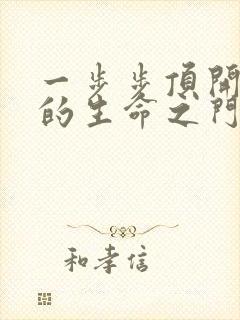 一步步頂開
的生命之門
和孝信